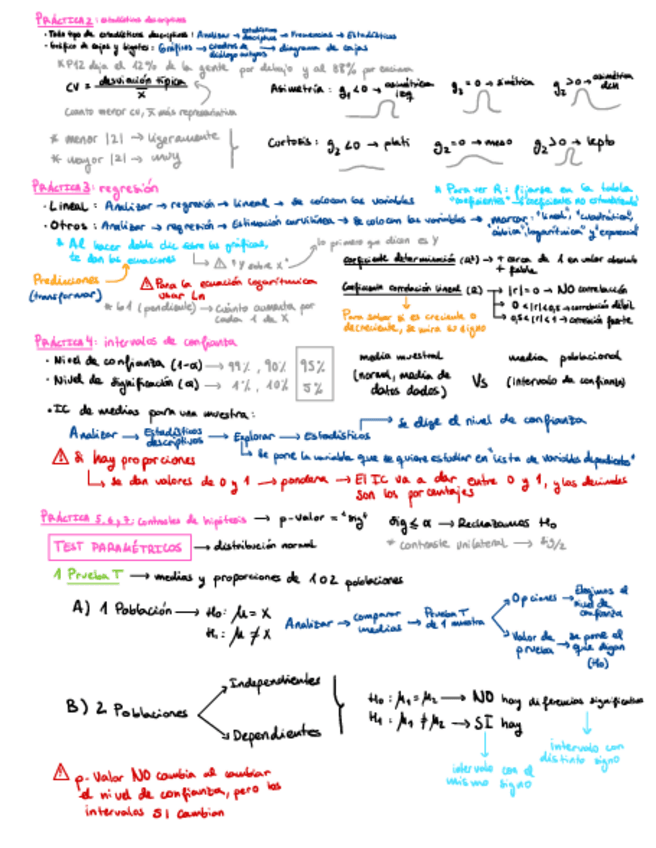 PRÁCTICA 2: estadísticos descriptivos
· Todo tipo de estadísticos descriptivos: Analizar → estadísticos descriptivos → Frecuencias → Estadísticos
· Gráfico de cajas y bigotes: Gráficos → cuadros de diálogo antiguos → diagrama de cajas
* P12 deja el 12% de la gente por debajo y al 88% por encima
CV = desviación típica / x̄
Asimetría: g₁ < 0 → asimétrica izq g₁ = 0 → simétrica g₂ > 0 → asimétrica dch
Cuanto menor CV, x̄ más representativa
* menor |z| → ligeramente
* mayor |z| → muy
Curtosis: g₂ < 0 → plati g₂ = 0 → meso g₂ > 0 → lepto
PRÁCTICA 3: regresión
* Para ver R: fijarse en la tabla "coeficientes" → coeficiente no estandarizado
· Lineal: Analizar → regresión → lineal → se colocan las variables
· Otros: Analizar → regresión → Estimación curvilínea → se colocan las variables → marcar: "lineal", "cuadrático", "cúbico", "logarítmica" y "exponencial"
* Al hacer doble clic sobre las gráficas, te dan las ecuaciones
⚠ "Y sobre X" lo primero que dicen es Y
Predicciones (transformar)
⚠ Para la ecuación logarítmica usar Ln
* b1 (pendiente) → cuánto aumenta por cada 1 de X
Coeficiente determinación (R²) → + cerca de 1 en valor absoluto + fiable
Coeficiente correlación lineal (R) → |r| = 0 → NO correlación
→ 0 < |r| < 0,5 → correlación débil
→ 0,5 < |r| < 1 → correlación fuerte
Para saber si es creciente o decreciente, se mira su signo
PRÁCTICA 4: intervalos de confianza
· Nivel de confianza (1-α) → 99%, 90% 95%
· Nivel de significación (α) → 1%, 10% 5%
media muestral (normal, media de datos dados) Vs media poblacional (intervalo de confianza)
· IC de medias para una muestra:
Analizar → Estadísticos descriptivos → Explorar → Estadísticos
→ Se elige el nivel de confianza
→ Se pone la variable que se quiere estudiar en "lista de variables dependientes"
⚠ Si hay proporciones
→ se dan valores de 0 y 1 → pondera → El IC va a dar entre 0 y 1, y los decimales son los porcentajes
PRÁCTICA 5, 6, 7: contrastes de hipótesis → p-valor = "sig" sig ≤ α → Rechazamos H₀
* contraste unilateral → sig/2
TEST PARAMÉTRICOS → distribución normal
1 Prueba T → medias y proporciones de 1 o 2 poblaciones
A) 1 Población → H₀: μ = x
H₁: μ ≠ x
Analizar → comparar medias → Prueba T de 1 muestra
→ Opciones → Elegimos el nivel de confianza
→ Valor de prueba → se pone el que digan (H₀)
B) 2 Poblaciones
→ Independientes
→ Dependientes
H₀: μ₁ = μ₂ → NO hay diferencias significativas
H₁: μ₁ ≠ μ₂ → SÍ hay
intervalo con distinto signo
intervalo con el mismo signo
⚠ p-valor NO cambia al cambiar el nivel de confianza, pero los intervalos SÍ cambian